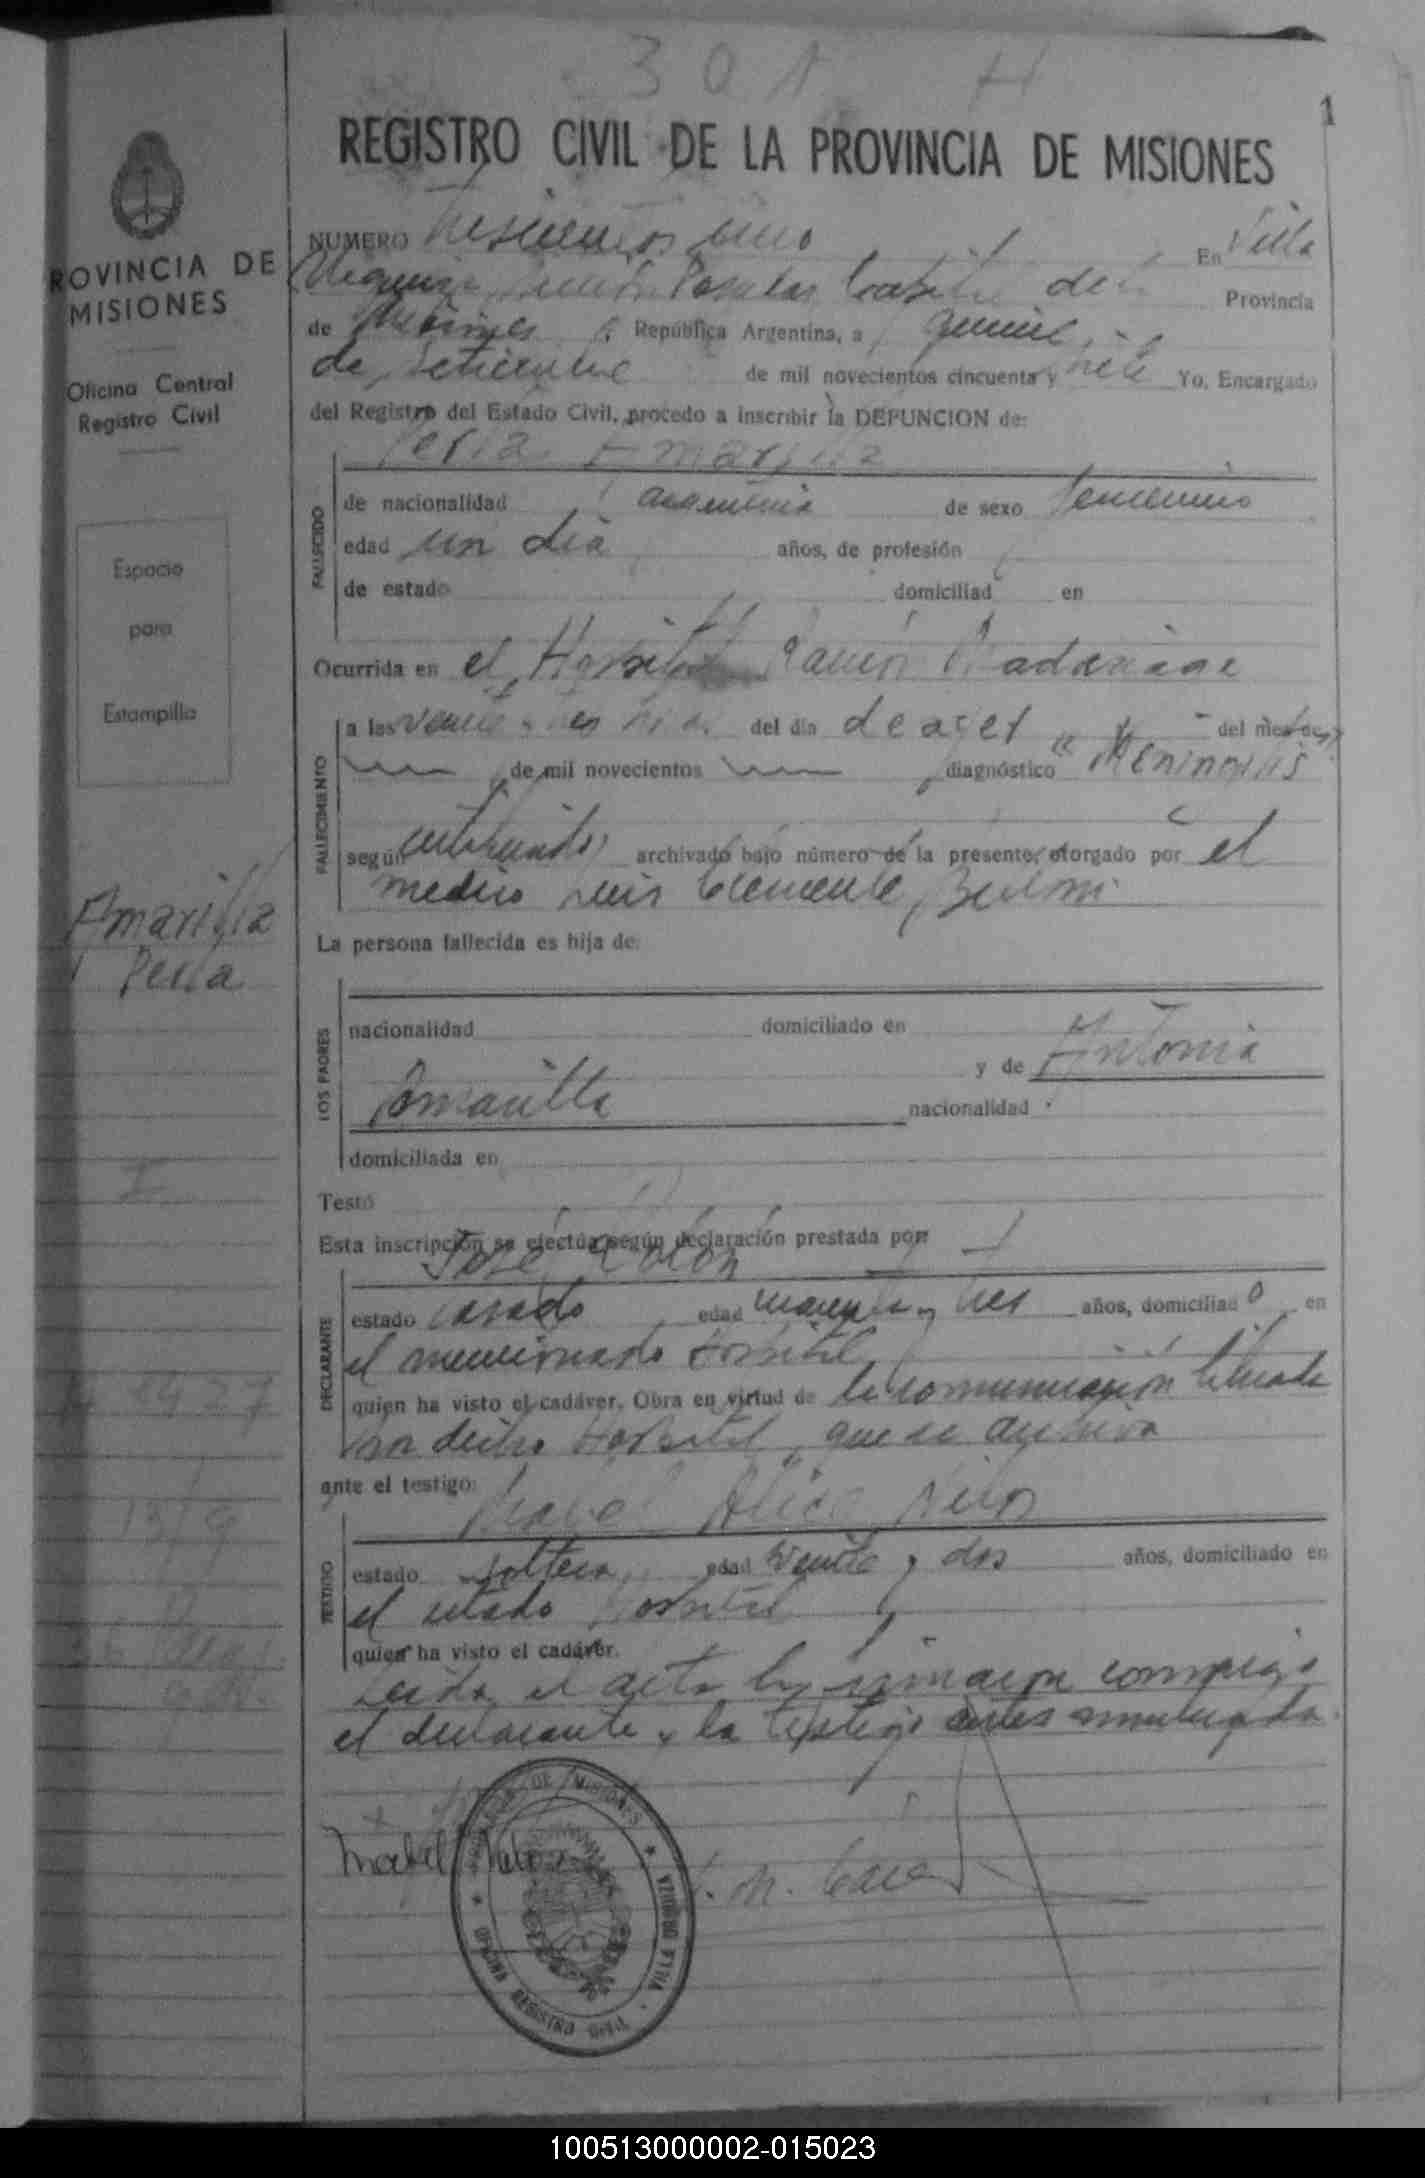 301 H
1
REGISTRO CIVIL DE LA PROVINCIA DE MISIONES
PROVINCIA DE
MISIONES
Oficina Central
Registro Civil
Espacio
para
Estampilla
Amarilla
Perla
I
13/9
NUMERO Trescientos uno En Villa
Urquiza Posadas Capital de la Provincia
de Misiones, República Argentina, a quince
de setiembre de mil novecientos cincuenta y siete Yo, Encargado
del Registro del Estado Civil, procedo a inscribir la DEFUNCION de:
Perla Amarilla
FALLECIDO
de nacionalidad argentina de sexo femenino
edad un día años, de profesión
de estado domiciliad en
Ocurrida en el Hospital Ramón Madariaga
FALLECIMIENTO
a las veinte y tres horas del día de ayer del mes de
de mil novecientos diagnóstico "Meningitis"
según certificado archivado bajo número de la presente, otorgado por el
medico Luis Clemente
La persona fallecida es hija de:
LOS PADRES
nacionalidad domiciliado en
y de Antonia
Amarilla nacionalidad
domiciliada en
Testó
Esta inscripción se efectúa según declaración prestada por:
José Colón
DECLARANTE
estado casado edad cuarenta y tres años, domiciliado en
el mencionado Hospital
quien ha visto el cadáver. Obra en virtud de la comunicación librada
por dicho Hospital, que se archiva
ante el testigo:
Mabel Alicia Veloz
TESTIGO
estado soltera edad veinte y dos años, domiciliado en
el citado Hospital
quien ha visto el cadáver.
Leída el acta la firmaron conmigo
el declarante y la testigo antes nombrada.
Mabel Veloz
PROVINCIA DE MISIONES * VILLA URQUIZA * OFICINA REGISTRO CIVIL
100513000002-015023